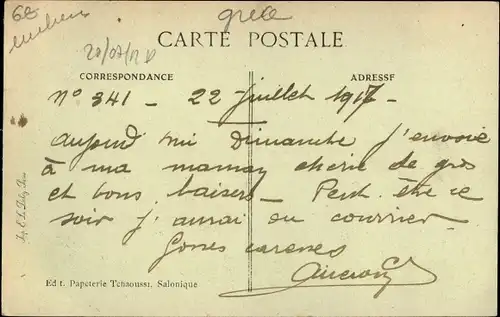 6e
grece
20/07/12
CARTE POSTALE
CORRESPONDANCE
ADRESSE
n° 341 - 22 Juillet 1917 -
aujourd'hui Dimanche j'envoie
à ma maman cherie de gros
et bons baisers - Peut être ce
soir j'aurai du courrier
Gosses caresses
Edit. Papeterie Tchaoussi, Salonique